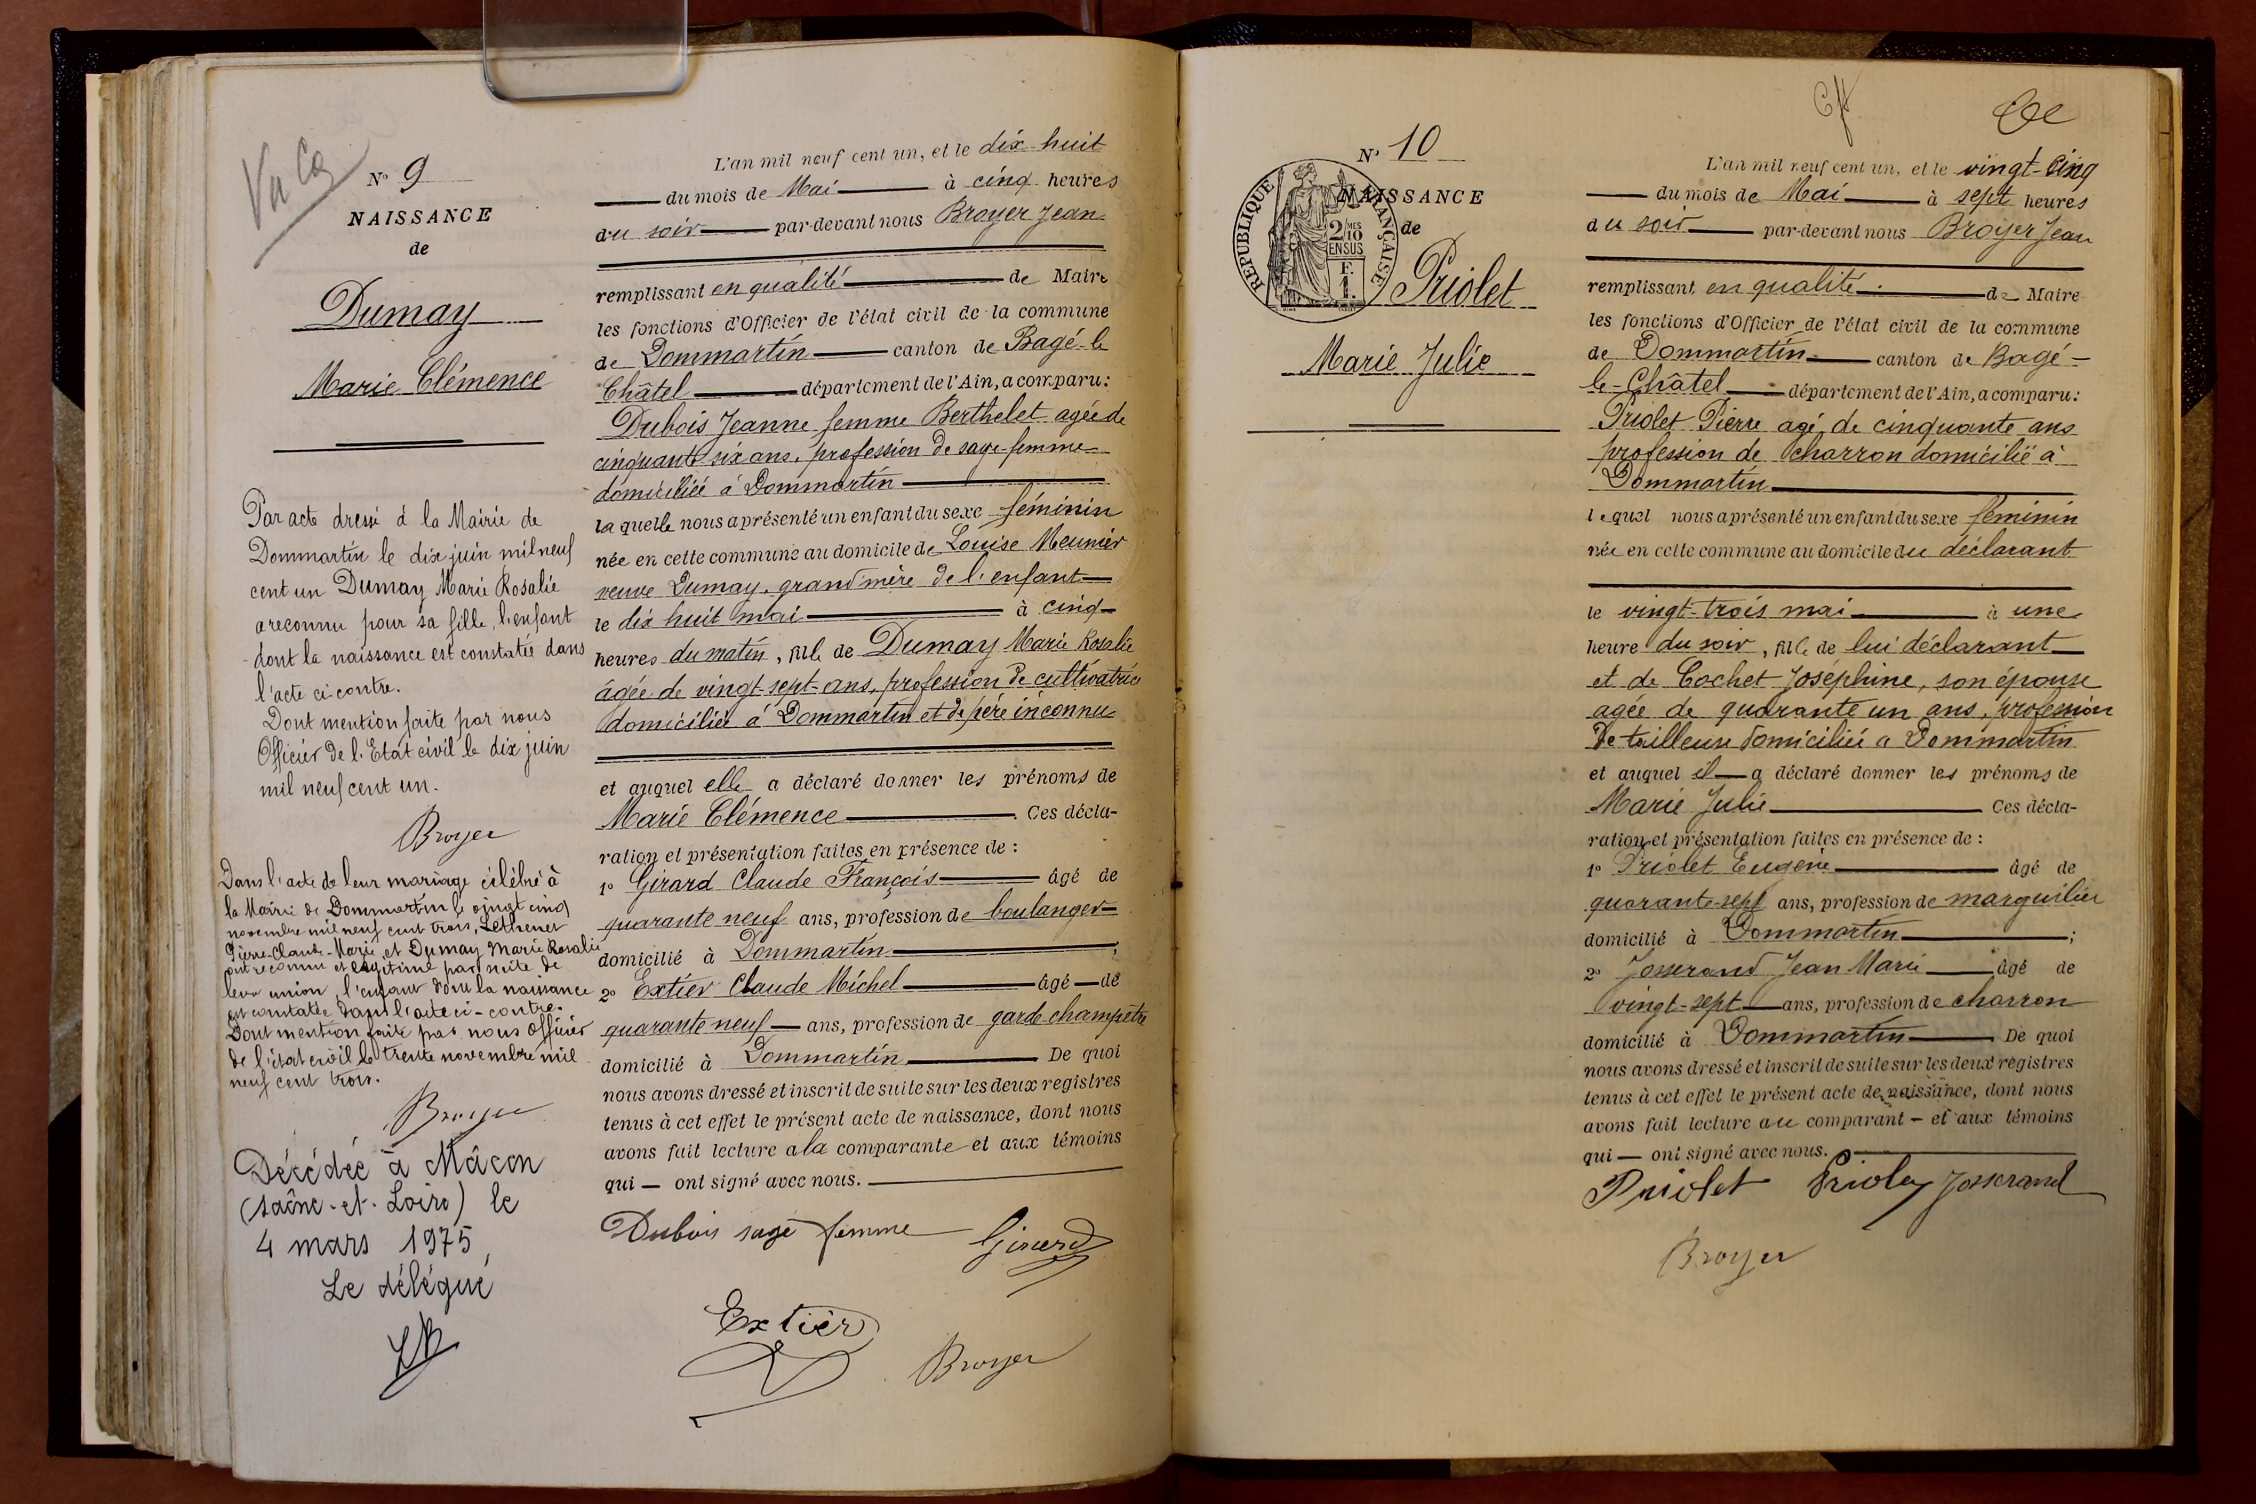 Vu Ca
N° 9
NAISSANCE
de
Dumay
Marie Clémence
Par acte dressé à la Mairie de
Dommartin le dix juin mil neuf
cent un Dumay Marie Rosalie
a reconnu pour sa fille, l'enfant
dont la naissance est constatée dans
l'acte ci-contre.
Dont mention faite par nous
Officier de l'Etat civil le dix juin
mil neuf cent un.
Broyer
Dans l'acte de leur mariage célébré à
la Mairie de Dommartin le vingt cinq
novembre mil neuf cent trois, Léthenet
Pierre-Claude-Marie et Dumay Marie Rosalie
ont reconnu et légitimé par suite de
leur union, l'enfant dont la naissance
est constatée dans l'acte ci-contre.
Dont mention faite par nous Officier
de l'état civil le trente novembre mil
neuf cent trois.
Broyer
Décédée à Mâcon
(Saône-et-Loire) le
4 mars 1975,
Le délégué
L'an mil neuf cent un, et le dix huit
du mois de Mai à cinq heures
du soir par-devant nous Broyer Jean
remplissant en qualité de Maire
les fonctions d'Officier de l'état civil de la commune
de Dommartin canton de Bagé-le
Châtel département de l'Ain, a comparu:
Dubois Jeanne femme Berthelet agée de
cinquante six ans, profession de sage-femme
domiciliée à Dommartin
laquelle nous a présenté un enfant du sexe féminin
née en cette commune au domicile de Louise Meunier
veuve Dumay, grand'mère de l'enfant
le dix huit mai à cinq
heures du matin, fille de Dumay Marie Rosalie
âgée de vingt-sept-ans, profession de cultivatrice
domiciliée à Dommartin et de père inconnu
et auquel elle a déclaré donner les prénoms de
Marie Clémence. Ces décla-
ration et présentation faites en présence de :
1° Girard Claude François âgé de
quarante neuf ans, profession de boulanger
domicilié à Dommartin ;
2° Extier Claude Michel âgé de
quarante neuf ans, profession de garde champêtre
domicilié à Dommartin De quoi
nous avons dressé et inscrit de suite sur les deux registres
tenus à cet effet le présent acte de naissance, dont nous
avons fait lecture a la comparante et aux témoins
qui — ont signé avec nous.
Dubois sage femme Girard
Extier
Broyer
N° 10
NAISSANCE
de
REPUBLIQUE FRANÇAISE
2/10 MES
EN SUS
F.
1.
Priolet
Marie Julie
L'an mil neuf cent un, et le vingt-cinq
du mois de Mai à sept heures
du soir par-devant nous Broyer Jean
remplissant en qualité de Maire
les fonctions d'Officier de l'état civil de la commune
de Dommartin canton de Bagé-
le-Châtel département de l'Ain, a comparu:
Priolet Pierre agé de cinquante ans
profession de charron domicilié à
Dommartin
lequel nous a présenté un enfant du sexe féminin
née en cette commune au domicile du déclarant
le vingt-trois mai à une
heure du soir, fille de lui déclarant
et de Cochet Joséphine, son épouse
agée de quarante un ans, profession
de tailleuse domiciliée a Dommartin
et auquel il a déclaré donner les prénoms de
Marie Julie Ces décla-
ration et présentation faites en présence de :
1° Priolet Eugène âgé de
quarante-sept ans, profession de marguilier
domicilié à Dommartin ;
2° Josserand Jean Marie âgé de
vingt-sept ans, profession de charron
domicilié à Dommartin De quoi
nous avons dressé et inscrit de suite sur les deux registres
tenus à cet effet le présent acte de naissance, dont nous
avons fait lecture au comparant — et aux témoins
qui — ont signé avec nous.
Priolet Priolet Josserand
Broyer